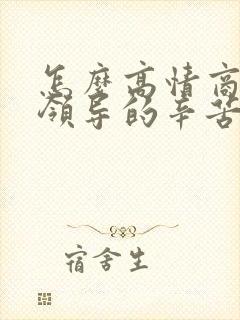 怎麼高情商
領导的辛苦
宿舍生